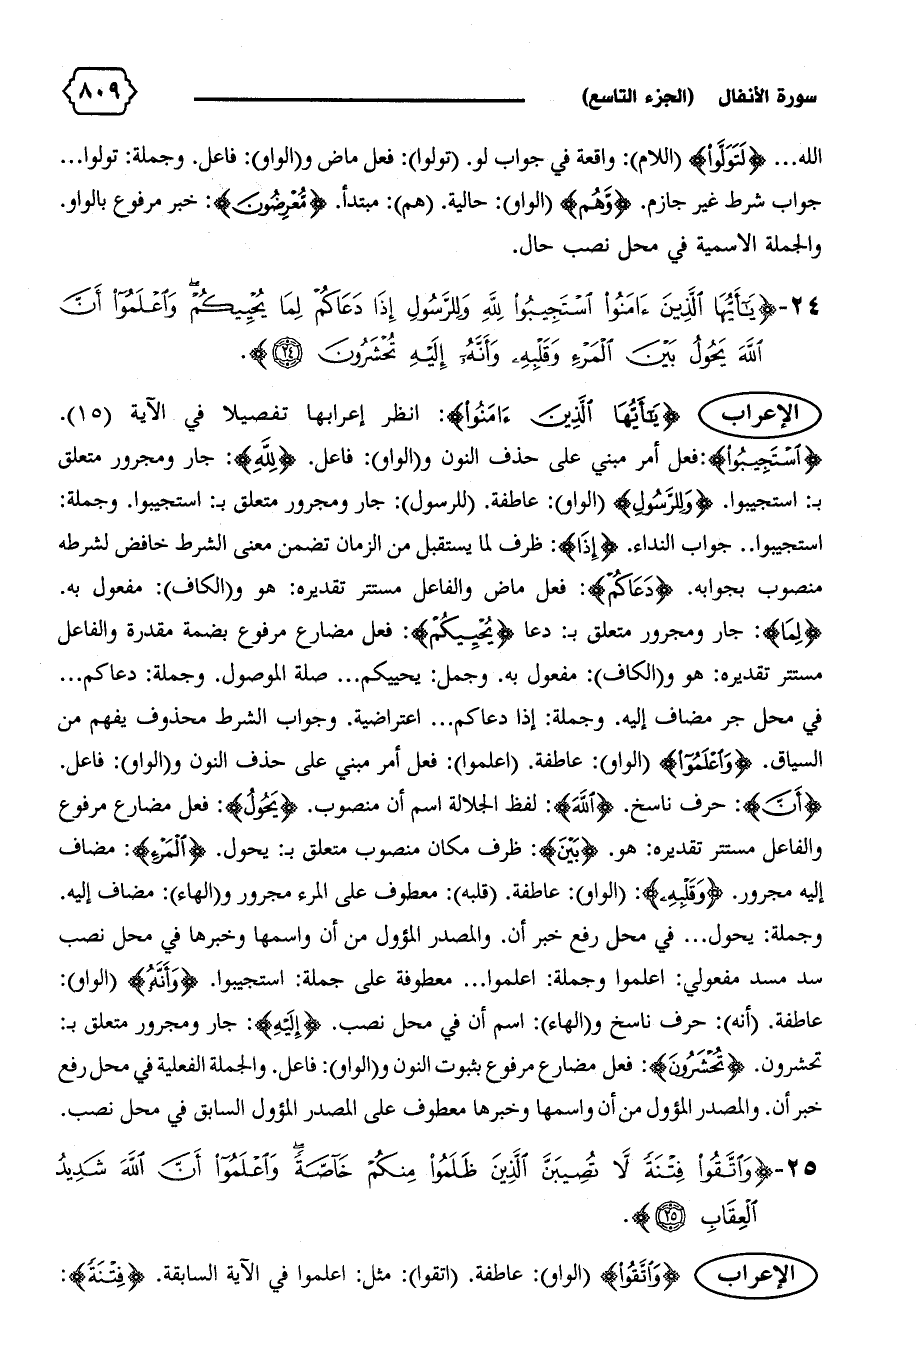 سورة الأنفال (الجزء التاسع)
٨٠٩
الله... ﴿لَتَوَلَّوا﴾ (اللام): واقعة في جواب لو. (تولوا): فعل ماض و(الواو): فاعل. وجملة: تولوا...
جواب شرط غير جازم. ﴿وَّهُم﴾ (الواو): حالية. (هم): مبتدأ. ﴿مُّعْرِضُونَ﴾: خبر مرفوع بالواو.
والجملة الاسمية في محل نصب حال.
٢٤-﴿يَٰٓأَيُّهَا ٱلَّذِينَ ءَامَنُوا۟ ٱسْتَجِيبُوا۟ لِلَّهِ وَلِلرَّسُولِ إِذَا دَعَاكُمْ لِمَا يُحْيِيكُمْ ۖ وَٱعْلَمُوٓا۟ أَنَّ
ٱللَّهَ يَحُولُ بَيْنَ ٱلْمَرْءِ وَقَلْبِهِۦ وَأَنَّهُۥٓ إِلَيْهِ تُحْشَرُونَ ٢٤﴾.
الإعراب ﴿يَٰٓأَيُّهَا ٱلَّذِينَ ءَامَنُوا۟﴾: انظر إعرابها تفصيلا في الآية (١٥).
﴿ٱسْتَجِيبُوا۟﴾:فعل أمر مبني على حذف النون و(الواو): فاعل. ﴿لِلَّهِ﴾: جار ومجرور متعلق
بـ: استجيبوا. ﴿وَلِلرَّسُولِ﴾ (الواو): عاطفة. (للرسول): جار ومجرور متعلق بـ: استجيبوا. وجملة:
استجيبوا.. جواب النداء. ﴿إِذَا﴾: ظرف لما يستقبل من الزمان تضمن معنى الشرط خافض لشرطه
منصوب بجوابه. ﴿دَعَاكُمْ﴾: فعل ماض والفاعل مستتر تقديره: هو و(الكاف): مفعول به.
﴿لِمَا﴾: جار ومجرور متعلق بـ: دعا ﴿يُحْيِيكُمْ﴾: فعل مضارع مرفوع بضمة مقدرة والفاعل
مستتر تقديره: هو و(الكاف): مفعول به. وجمل: يحييكم... صلة الموصول. وجملة: دعاكم...
في محل جر مضاف إليه. وجملة: إذا دعاكم... اعتراضية. وجواب الشرط محذوف يفهم من
السياق. ﴿وَٱعْلَمُوٓا۟﴾ (الواو): عاطفة. (اعلموا): فعل أمر مبني على حذف النون و(الواو): فاعل.
﴿أَنَّ﴾: حرف ناسخ. ﴿ٱللَّهَ﴾: لفظ الجلالة اسم أن منصوب. ﴿يَحُولُ﴾: فعل مضارع مرفوع
والفاعل مستتر تقديره: هو. ﴿بَيْنَ﴾: ظرف مكان منصوب متعلق بـ: يحول. ﴿ٱلْمَرْءِ﴾: مضاف
إليه مجرور. ﴿وَقَلْبِهِۦ﴾: (الواو): عاطفة. (قلبه): معطوف على المرء مجرور و(الهاء): مضاف إليه.
وجملة: يحول... في محل رفع خبر أن. والمصدر المؤول من أن واسمها وخبرها في محل نصب
سد مسد مفعولي: اعلموا وجملة: اعلموا... معطوفة على جملة: استجيبوا. ﴿وَأَنَّهُ﴾ (الواو):
عاطفة. (أنه): حرف ناسخ و(الهاء): اسم أن في محل نصب. ﴿إِلَيْهِ﴾: جار ومجرور متعلق بـ:
تحشرون. ﴿تُحْشَرُونَ﴾: فعل مضارع مرفوع بثبوت النون و(الواو): فاعل. والجملة الفعلية في محل رفع
خبر أن. والمصدر المؤول من أن واسمها وخبرها معطوف على المصدر المؤول السابق في محل نصب.
٢٥-﴿وَٱتَّقُوا۟ فِتْنَةً لَّا تُصِيبَنَّ ٱلَّذِينَ ظَلَمُوا۟ مِنكُمْ خَآصَّةً ۖ وَٱعْلَمُوٓا۟ أَنَّ ٱللَّهَ شَدِيدُ
ٱلْعِقَابِ ٢٥﴾.
الإعراب ﴿وَٱتَّقُوا۟﴾ (الواو): عاطفة. (اتقوا): مثل: اعلموا في الآية السابقة. ﴿فِتْنَةً﴾: